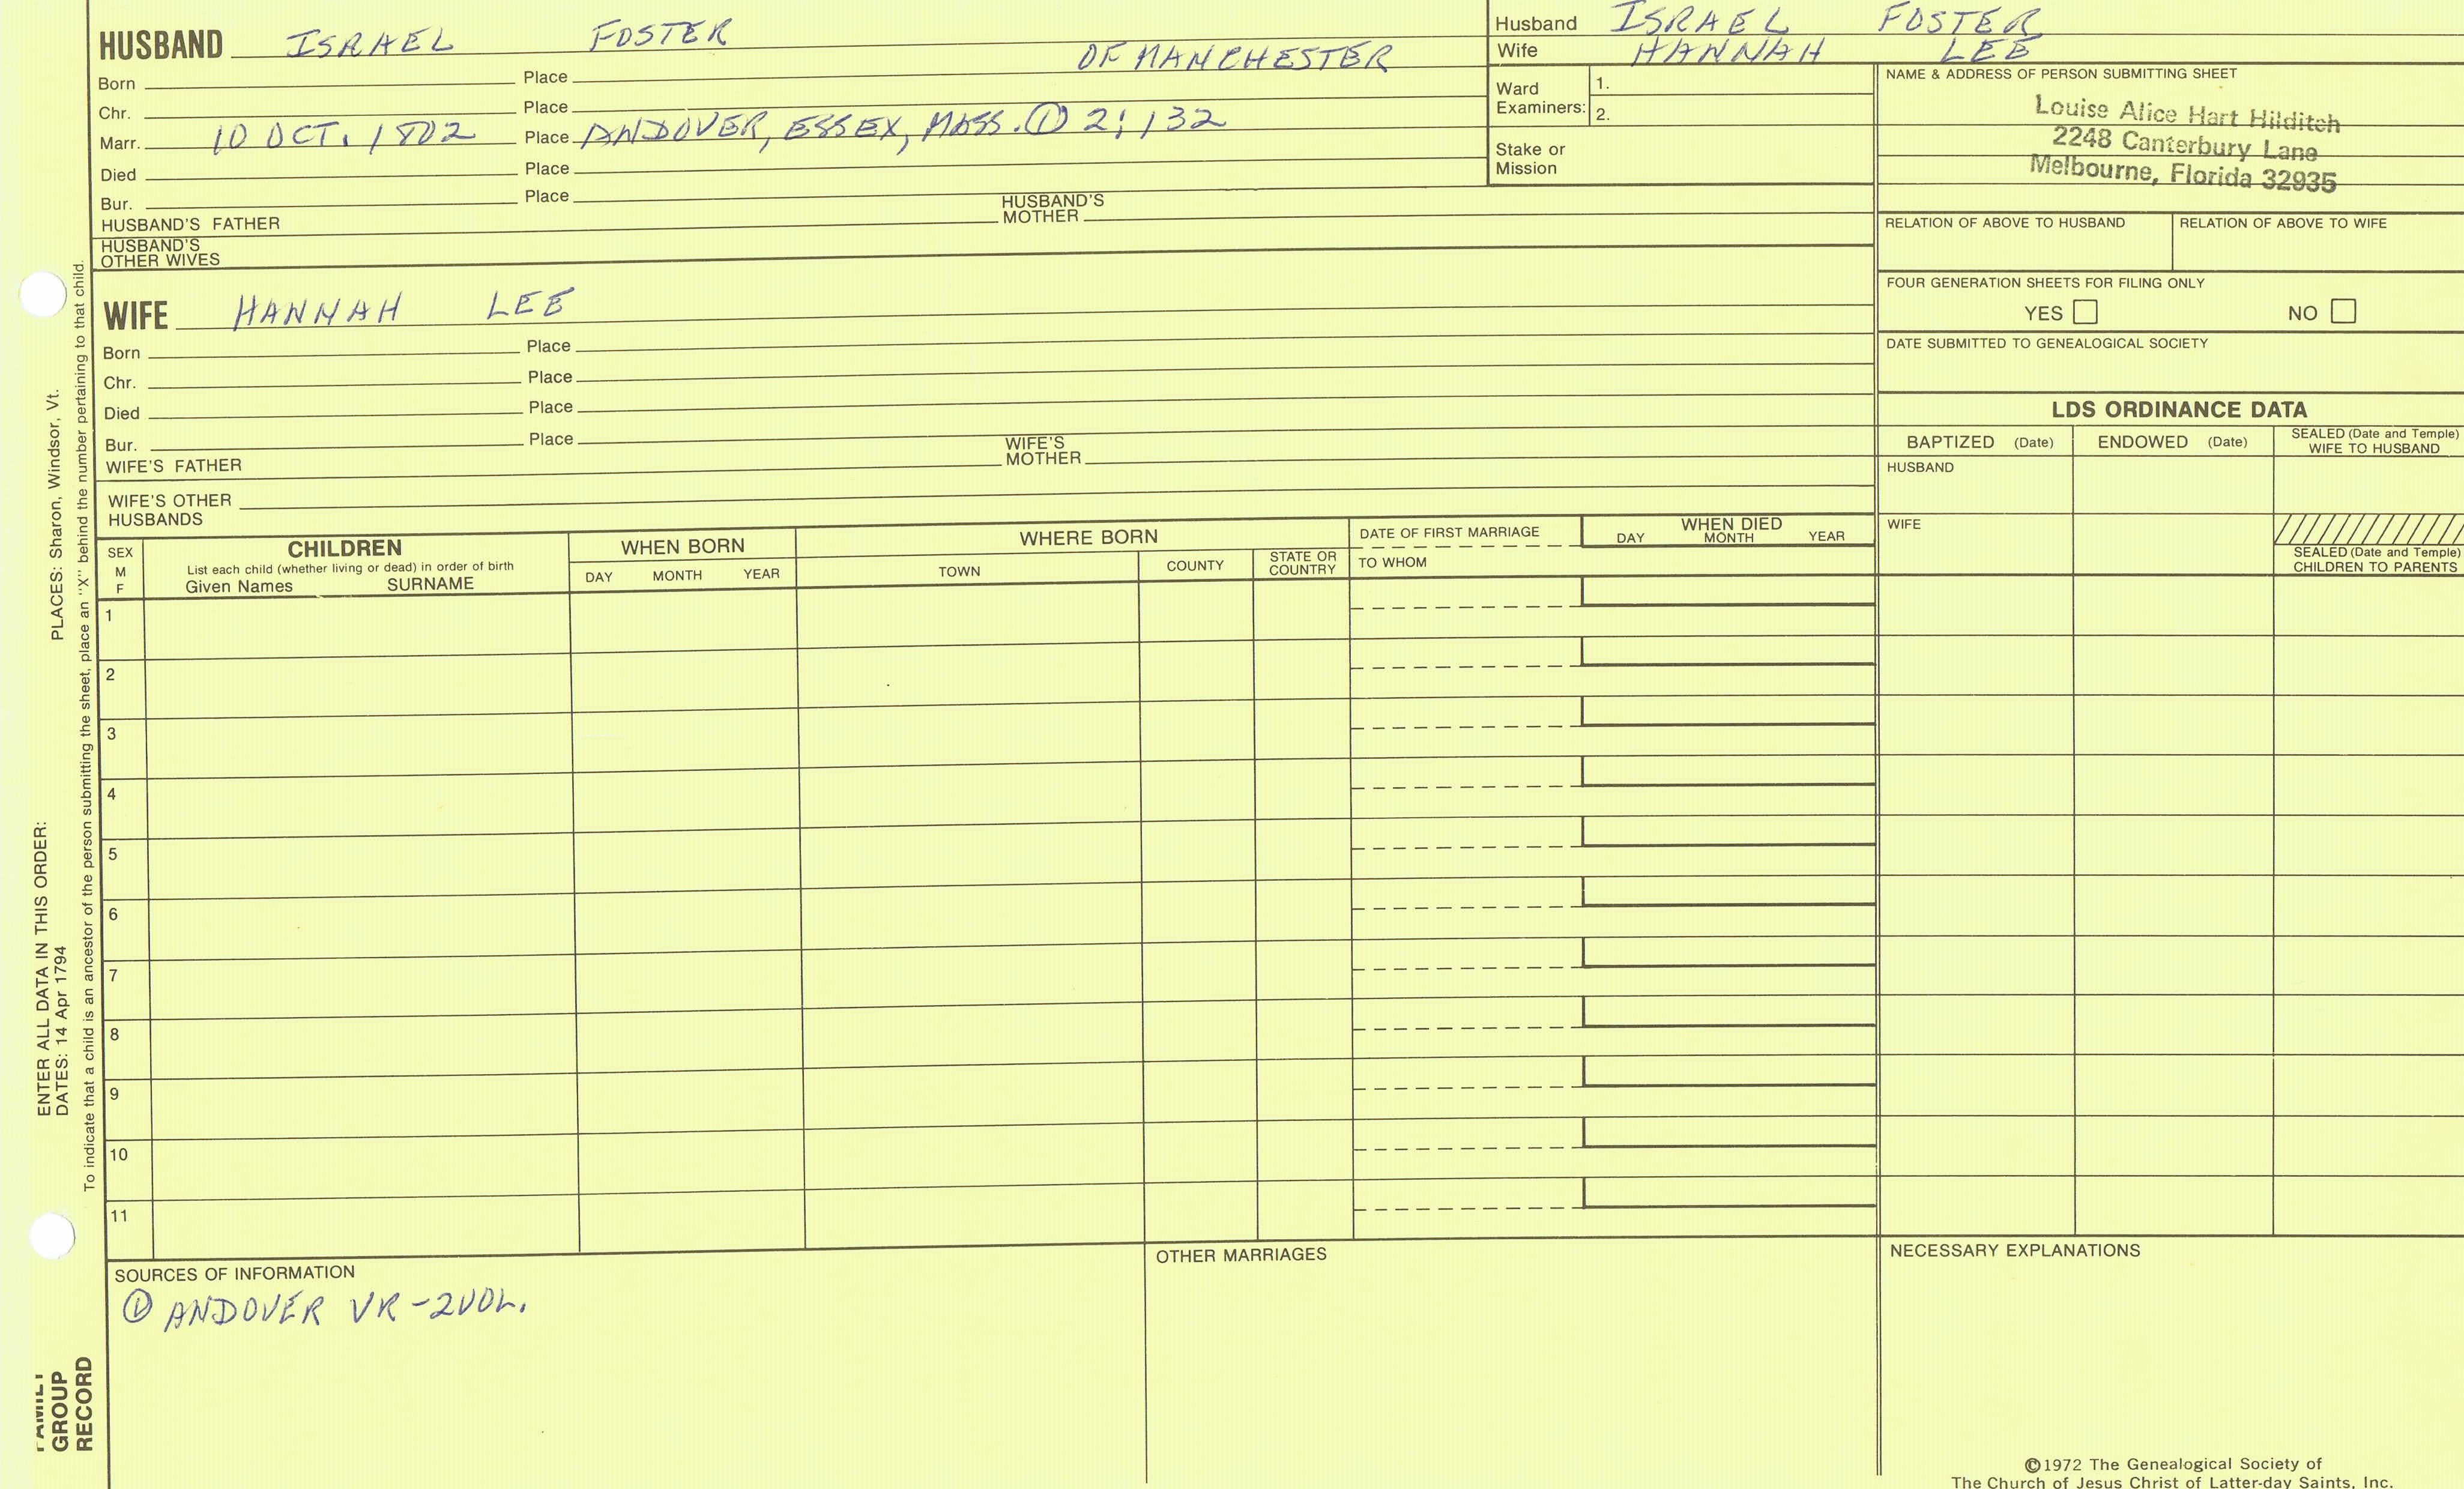 HUSBAND ISRAEL FOSTER OF MANCHESTER
Born Place
Chr. Place
Marr. 10 OCT. 1802 Place ANDOVER, ESSEX, MASS. ① 2:132
Died Place
Bur. Place
HUSBAND'S FATHER HUSBAND'S MOTHER
HUSBAND'S OTHER WIVES
Husband ISRAEL FOSTER
Wife HANNAH LEE
Ward Examiners: 1.
2.
Stake or Mission
NAME & ADDRESS OF PERSON SUBMITTING SHEET
Louise Alice Hart Hilditch
2248 Canterbury Lane
Melbourne, Florida 32935
RELATION OF ABOVE TO HUSBAND RELATION OF ABOVE TO WIFE
FOUR GENERATION SHEETS FOR FILING ONLY
YES NO
DATE SUBMITTED TO GENEALOGICAL SOCIETY
WIFE HANNAH LEE
Born Place
Chr. Place
Died Place
Bur. Place
WIFE'S FATHER WIFE'S MOTHER
WIFE'S OTHER HUSBANDS
LDS ORDINANCE DATA
BAPTIZED (Date) ENDOWED (Date) SEALED (Date and Temple) WIFE TO HUSBAND
HUSBAND
WIFE
SEALED (Date and Temple) CHILDREN TO PARENTS
SEX M F
CHILDREN
List each child (whether living or dead) in order of birth
Given Names SURNAME
WHEN BORN
DAY MONTH YEAR
WHERE BORN
TOWN COUNTY STATE OR COUNTRY
DATE OF FIRST MARRIAGE
TO WHOM
WHEN DIED
DAY MONTH YEAR
1
2
3
4
5
6
7
8
9
10
11
SOURCES OF INFORMATION
① ANDOVER VR-2VOL.
OTHER MARRIAGES
NECESSARY EXPLANATIONS
©1972 The Genealogical Society of
The Church of Jesus Christ of Latter-day Saints, Inc.
FAMILY
GROUP
RECORD
ENTER ALL DATA IN THIS ORDER:
DATES: 14 Apr 1794
PLACES: Sharon, Windsor, Vt.
To indicate that a child is an ancestor of the person submitting the sheet, place an "X" behind the number pertaining to that child.